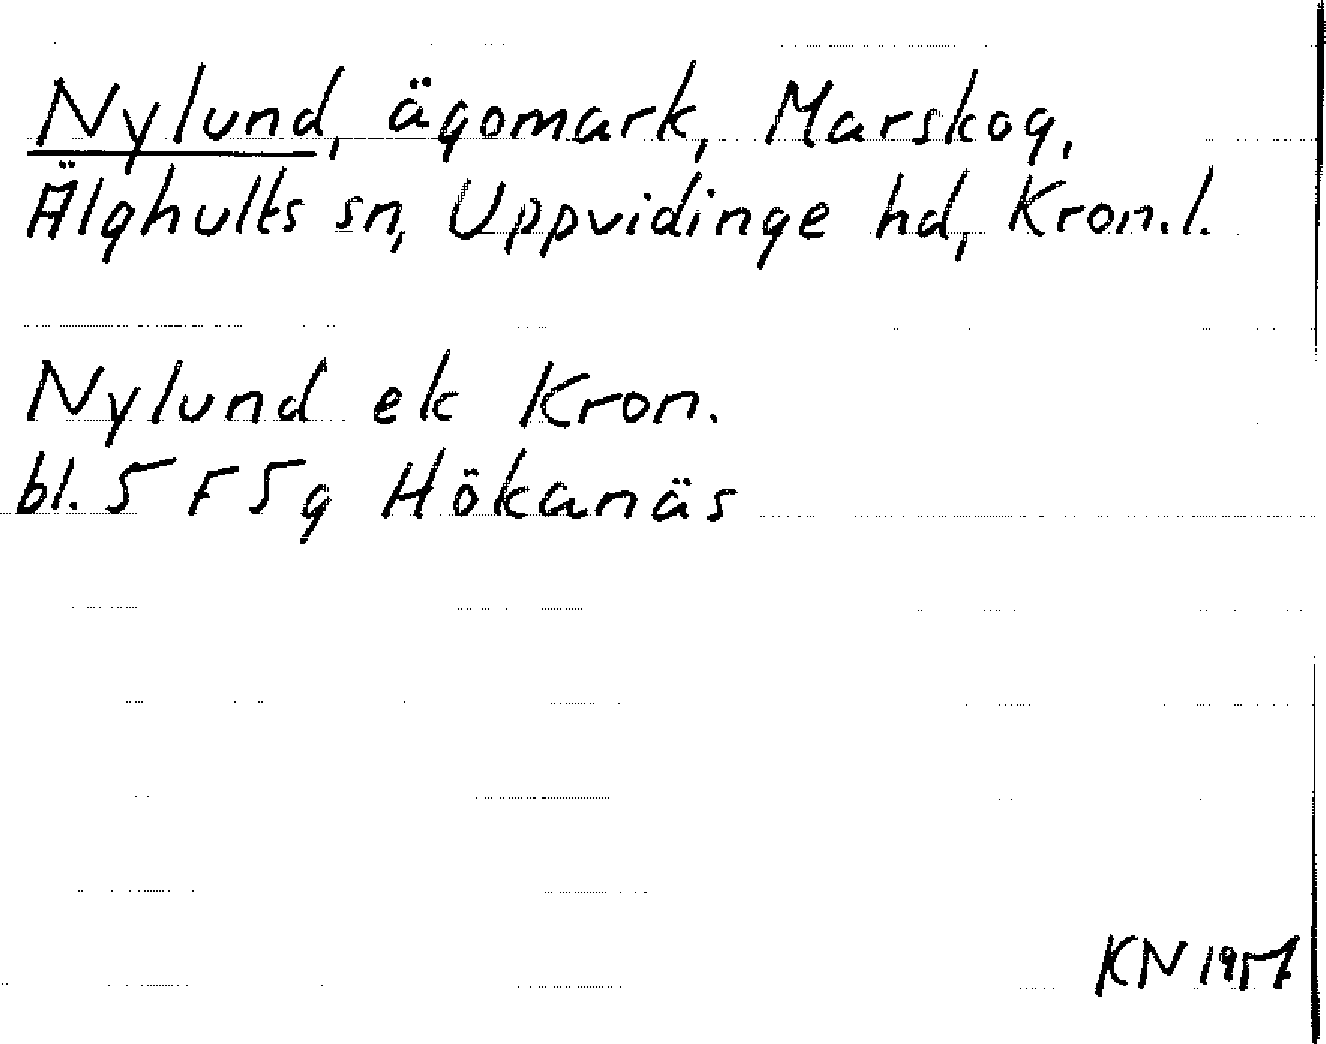 Nylund, ägomark, Marskog,
Älghults sn, Uppvidinge hd, Kron.l.
Nylund ek Kron.
bl. 5 F 5g Hökanäs
KN 1957